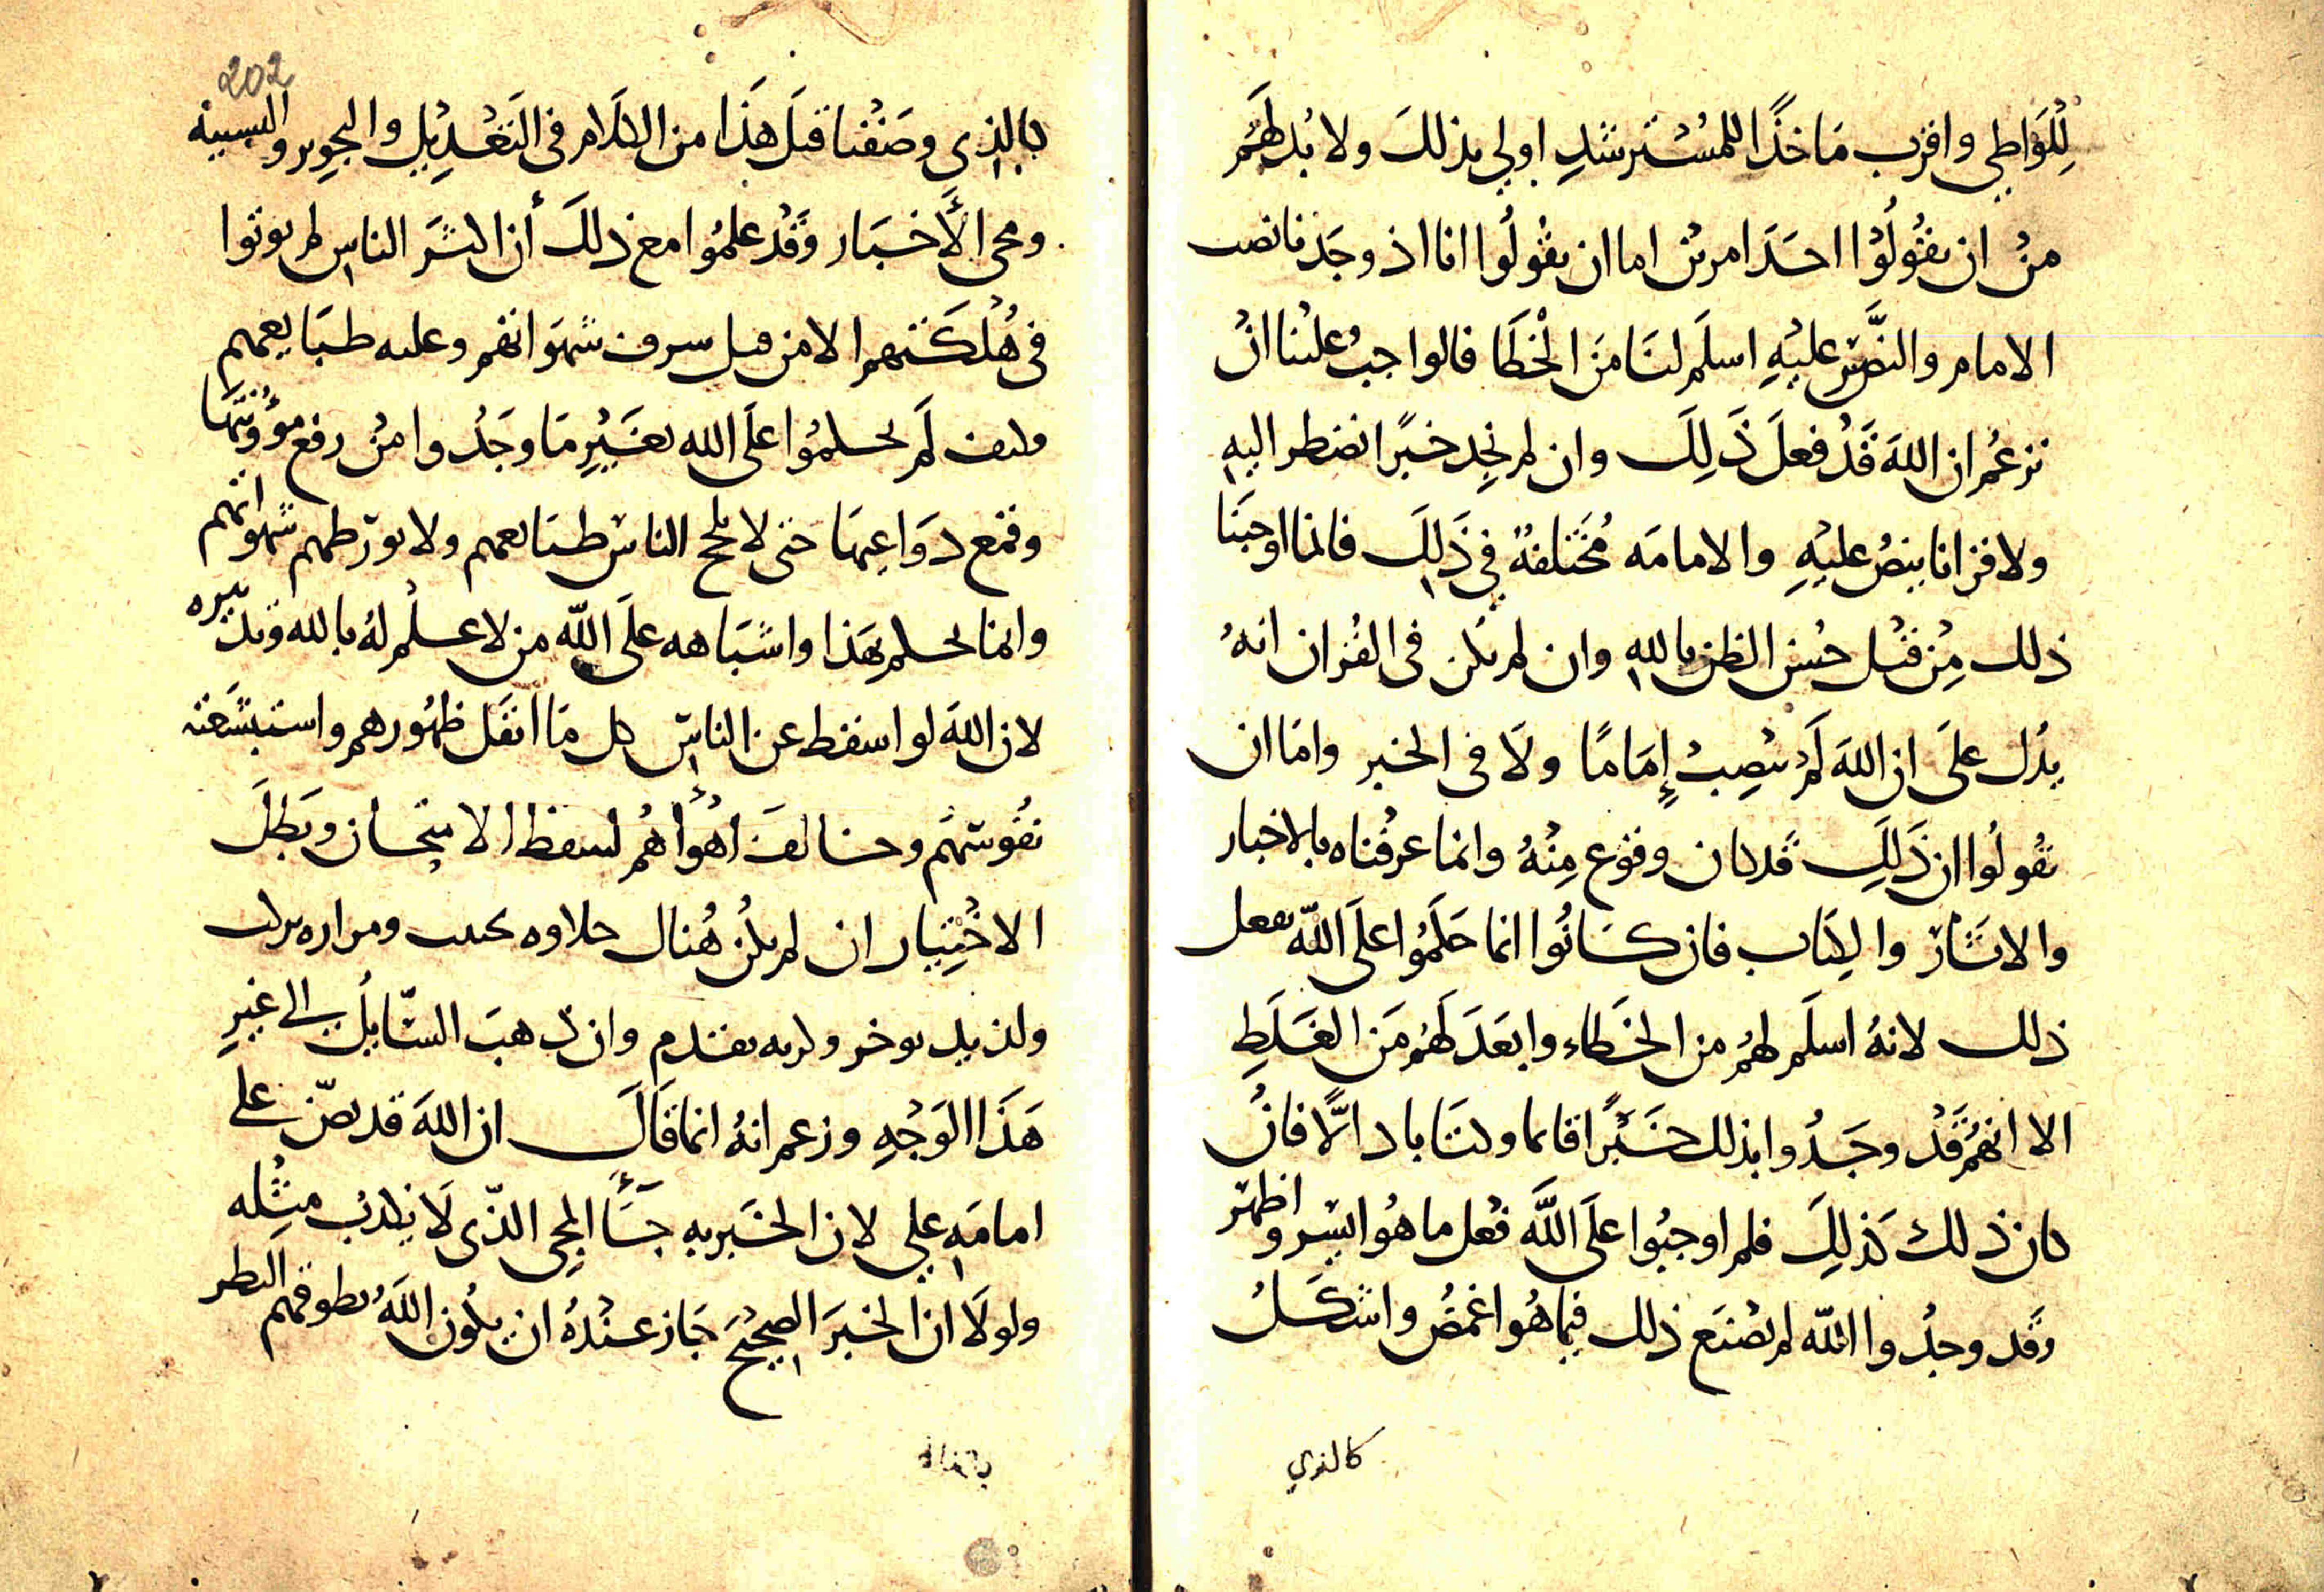 للواطي واقرب ماخذا للمسترشد اولي بذلك ولا بد لهم
من ان يقولوا احد امرين اما ان يقولوا انا اذ وجدنا نصب
الامام والنص عليه اسلم لنا من الخطا فالواجب علينا ان
نزعم ان الله قد فعل ذلك وان لم نجد خبرا نضطر اليه
ولا قرانا ينص عليه والامامه مختلفة في ذلك فانما اوجبنا
ذلك من قبل حسن الظن بالله وان لم يكن في القران انه
يدل على ان الله لم ينصب إماما ولا في الخبر واما ان
يقولوا ان ذلك قد كان وقوع منه وانما عرفناه بالاخبار
والاثار والكتاب فان كانوا انما حكموا على الله بفعل
ذلك لانه اسلم لهم من الخطاء وابعد لهم من الغلط
الا انهم قد وجدوا بذلك خبرا قائما وكتابا دالا فان
كان ذلك كذلك فلم اوجبوا على الله فعل ما هو ايسر واظهر
وقد وجدوا الله لم يصنع ذلك فيما هو اغمض واشكل
كالذي
202
بالذي وصفنا قبل هذا من الكلام في التعديل والتجوير والتشبيه
ومجى الأخبار وقد علموا مع ذلك أن اكثر الناس لم يوتوا
في هلكتهم الا من قبل سرف شهواتهم وعلبه طبايعهم
وكيف لم يحكموا على الله بغير ما وجدوا من رفع مؤونتها
وقمع دواعيها حتى لا يلج الناس طبايعهم ولا تورطهم شهواتهم
وانما يحكم بهذا واشباهه على الله من لا علم له بالله وتدبيره
لان الله لو اسقط عن الناس كل ما اثقل ظهورهم واستبشعته
نفوسهم وخالف اهواءهم لسقط الامتحان وبطل
الاختيار ان لم يكن هناك حلاوه تجتنب ومراره تركب
ولذيذ يوخر وكريه يقدم وان ذهب السايل الى غير
هذا الوجه وزعم انه انما قال ان الله قد نص على
امامه علي لان الخبر به جاء المجي الذي لا يكذب مثله
ولولا ان الخبر الصحيح جاز عنده ان يكون الله يطوقهم النظر